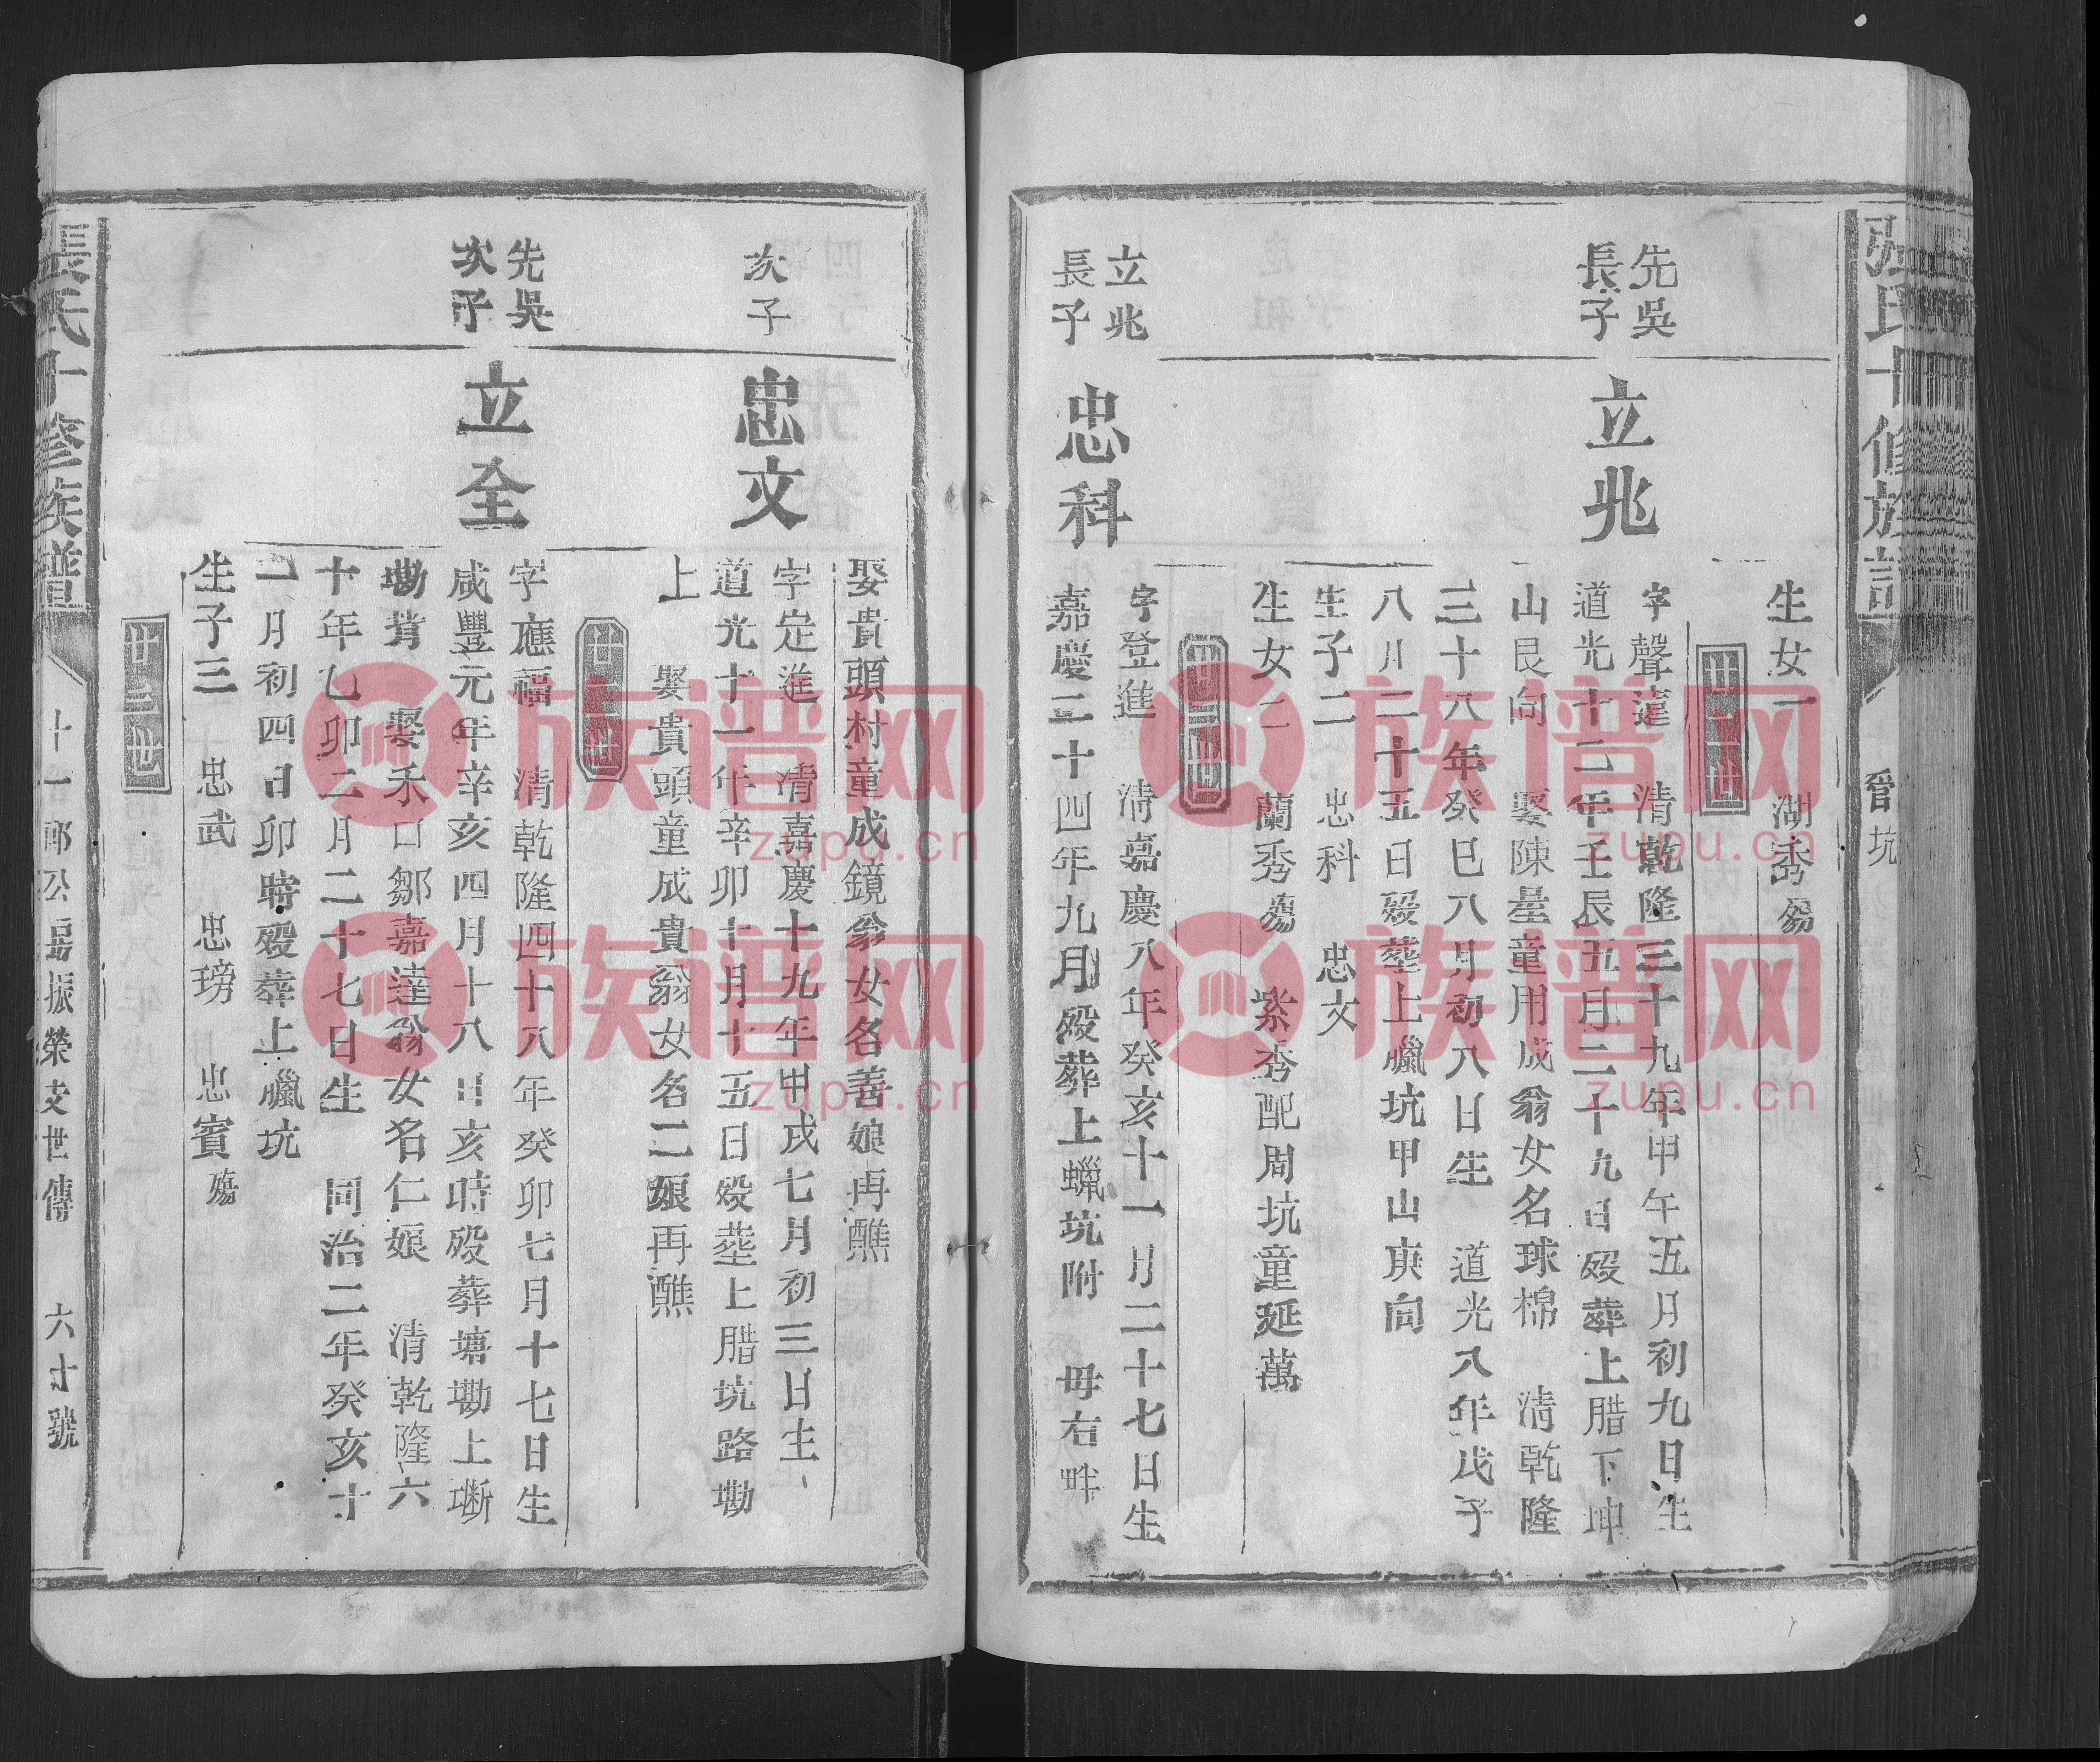 張氏十修族譜
晉坑
生女一 湖秀殤
廿二世
先吳
長子
立兆
字聲達 清乾隆三十九年甲午五月初九日生
道光十二年壬辰五月二十九日殁葬上腊下坤
山艮向 娶陳星童用成翁女名球棉 清乾隆
三十八年癸巳八月初八日生 道光八年戊子
八月二十五日殁葬上臘坑甲山庚向
生子二 忠科 忠文
生女二 蘭秀殤 紫秀配周坑童延萬
廿三世
立兆
長子
忠科
字登進 清嘉慶八年癸亥十一月二十七日生
嘉慶二十四年九月殁葬上蠟坑附 母右畔
娶貴頭村童成鏡翁女名善娘再醮
次子
忠文
字定進 清嘉慶十九年甲戌七月初三日生
道光十一年辛卯十月十五日殁葬上腊坑路墈
上 娶貴頭童成貴翁女名二娘再醮
廿二世
先吳
次子
立全
字應福 清乾隆四十八年癸卯七月十七日生
咸豐元年辛亥四月十八日亥時殁葬塘墈上
墈背 娶禾口鄒嘉達翁女名仁娘 清乾隆六
十年乙卯二月二十七日生 同治二年癸亥十
一月初四日卯時殁葬上臘坑
生子三 忠武 忠瑂 忠賓殤
廿三世
張氏十修族譜
十一郎公房振榮支世傳 六十號
族谱网
zupu.cn
族谱网
zupu.cn
族谱网
zupu.cn
族谱网
zupu.cn